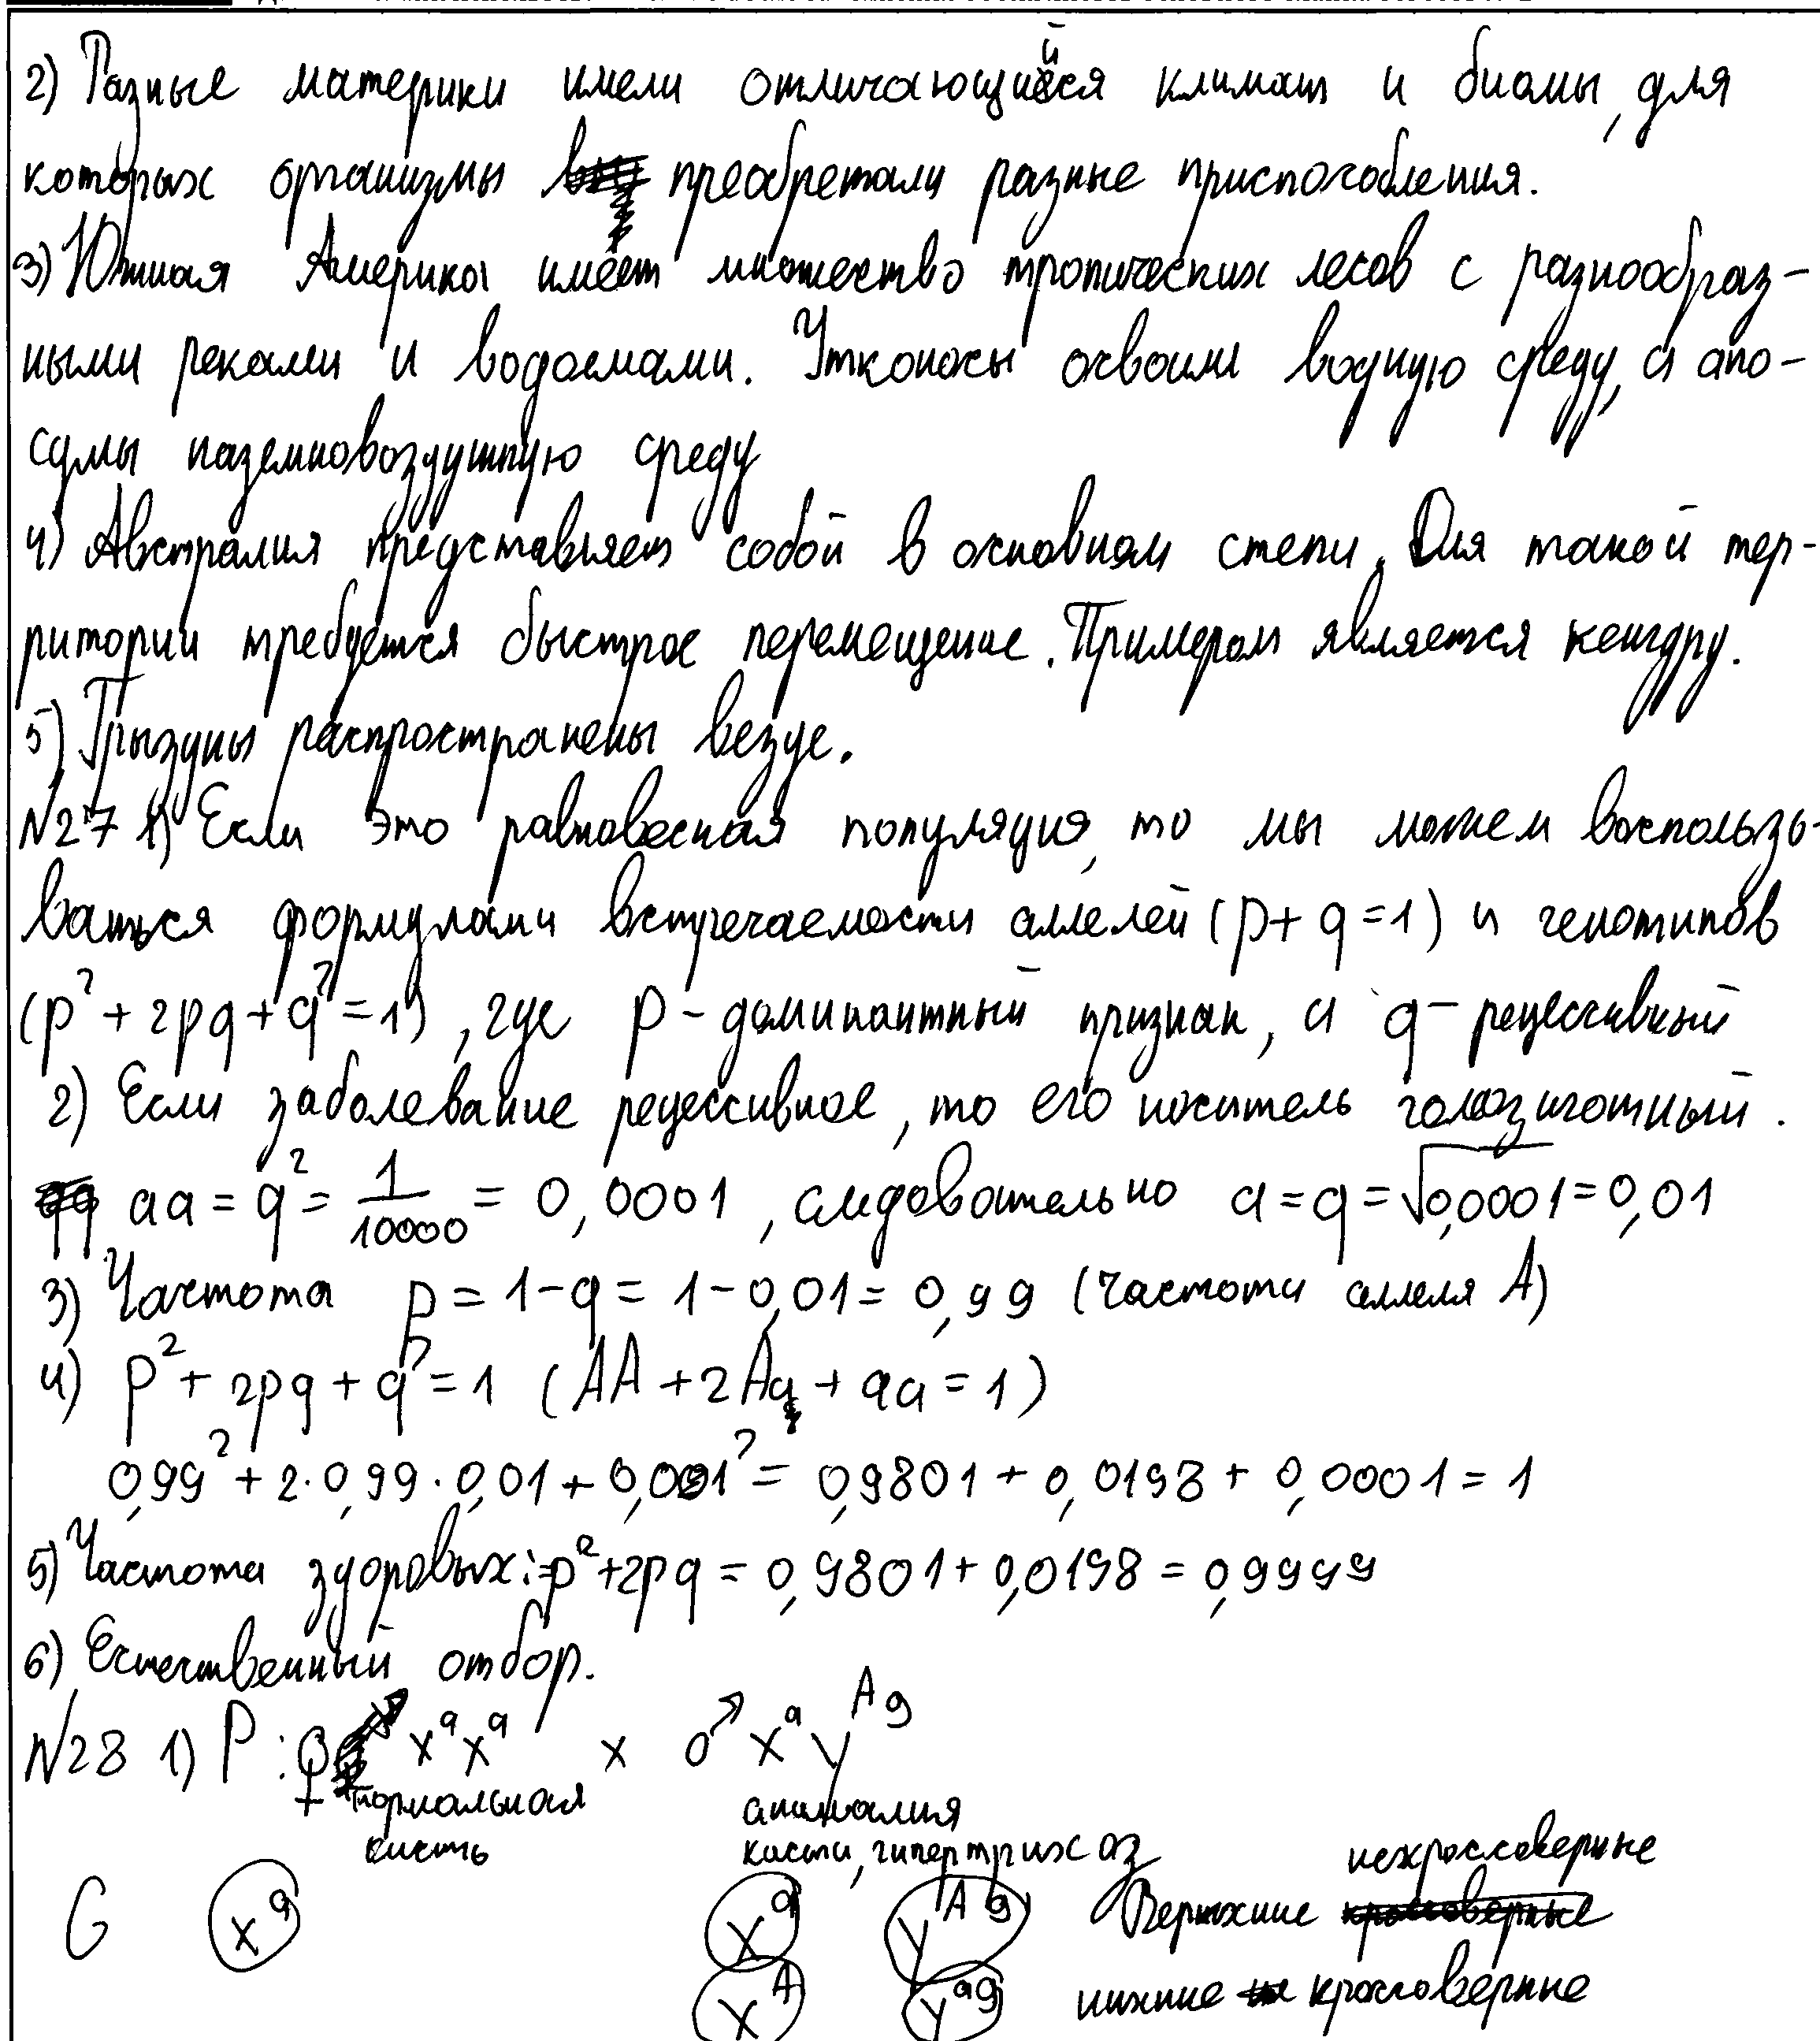 2) Разные материки имели отличающийся климат и биомы, для
которых организмы преобретали разные приспособления.
3) Южная Америка имеет множество тропических лесов с разнообраз-
ными реками и водоемами. Утконосы освоили водную среду, а опо-
сумы наземновоздушную среду
4) Австралия представляет собой в основном степи. Для такой тер-
ритории требуется быстрое перемещение. Примером является кенгуру.
5) Грызуны распространены везде.
№27 1) Если это равновесная популяция, то мы можем воспользо-
ваться формулами встречаемости аллелей (p + q = 1) и генотипов
(p² + 2pq + q² = 1), где p - доминантный признак, а q - рецессивный
2) Если заболевание рецессивное, то его носитель гомозиготный.
aa = q² = 1/10000 = 0,0001, следовательно a = q = √0,0001 = 0,01
3) Частота p = 1 - q = 1 - 0,01 = 0,99 (частота аллеля A)
4) p² + 2pq + q² = 1 (AA + 2Aa + aa = 1)
0,99² + 2·0,99·0,01 + 0,001² = 0,9801 + 0,0198 + 0,0001 = 1
5) Частота здоровых: = p² + 2pq = 0,9801 + 0,0198 = 0,9999
6) Естественный отбор.
№28 1) P: ♀ XᵃXᵃ x ♂ XᵃYᴬᵍ
нормальная кисть аномалия кисти, гипертрихоз
нехроссоверные
G Xᵃ Xᵃ Yᴬᵍ Верхние
Xᴬ Yᵃᵍ нижние кроссоверные